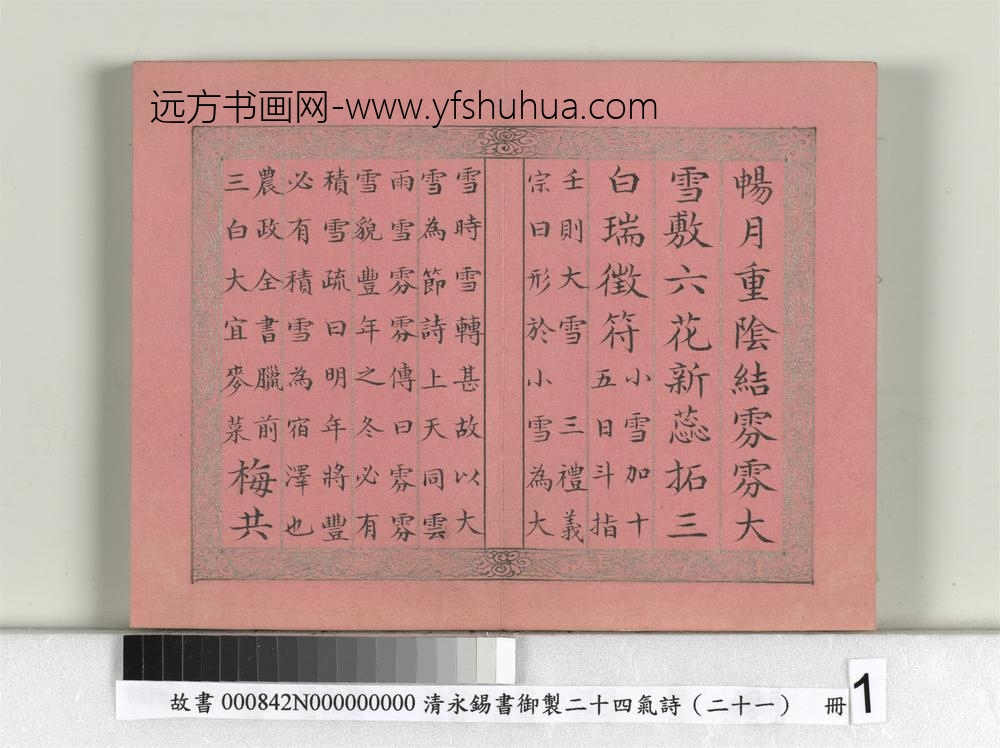 远方书画网-www.yfshuhua.com
暢月重陰結雰雰大
雪敷六花新蕊拓三
白瑞徵符
小雪加十
五日斗指
壬則大雪 三禮義
宗曰形於小雪為大
雪時雪轉甚故以大
雪為節詩上天同雲
雨雪雰雰傳曰雰雰
雪貌豐年之冬必有
積雪疏曰明年將豐
必有積雪為宿澤也
農政全書臘前
三白大宜麥菜
梅共
故書 000842N000000000 清永錫書御製二十四氣詩（二十一） 冊 1